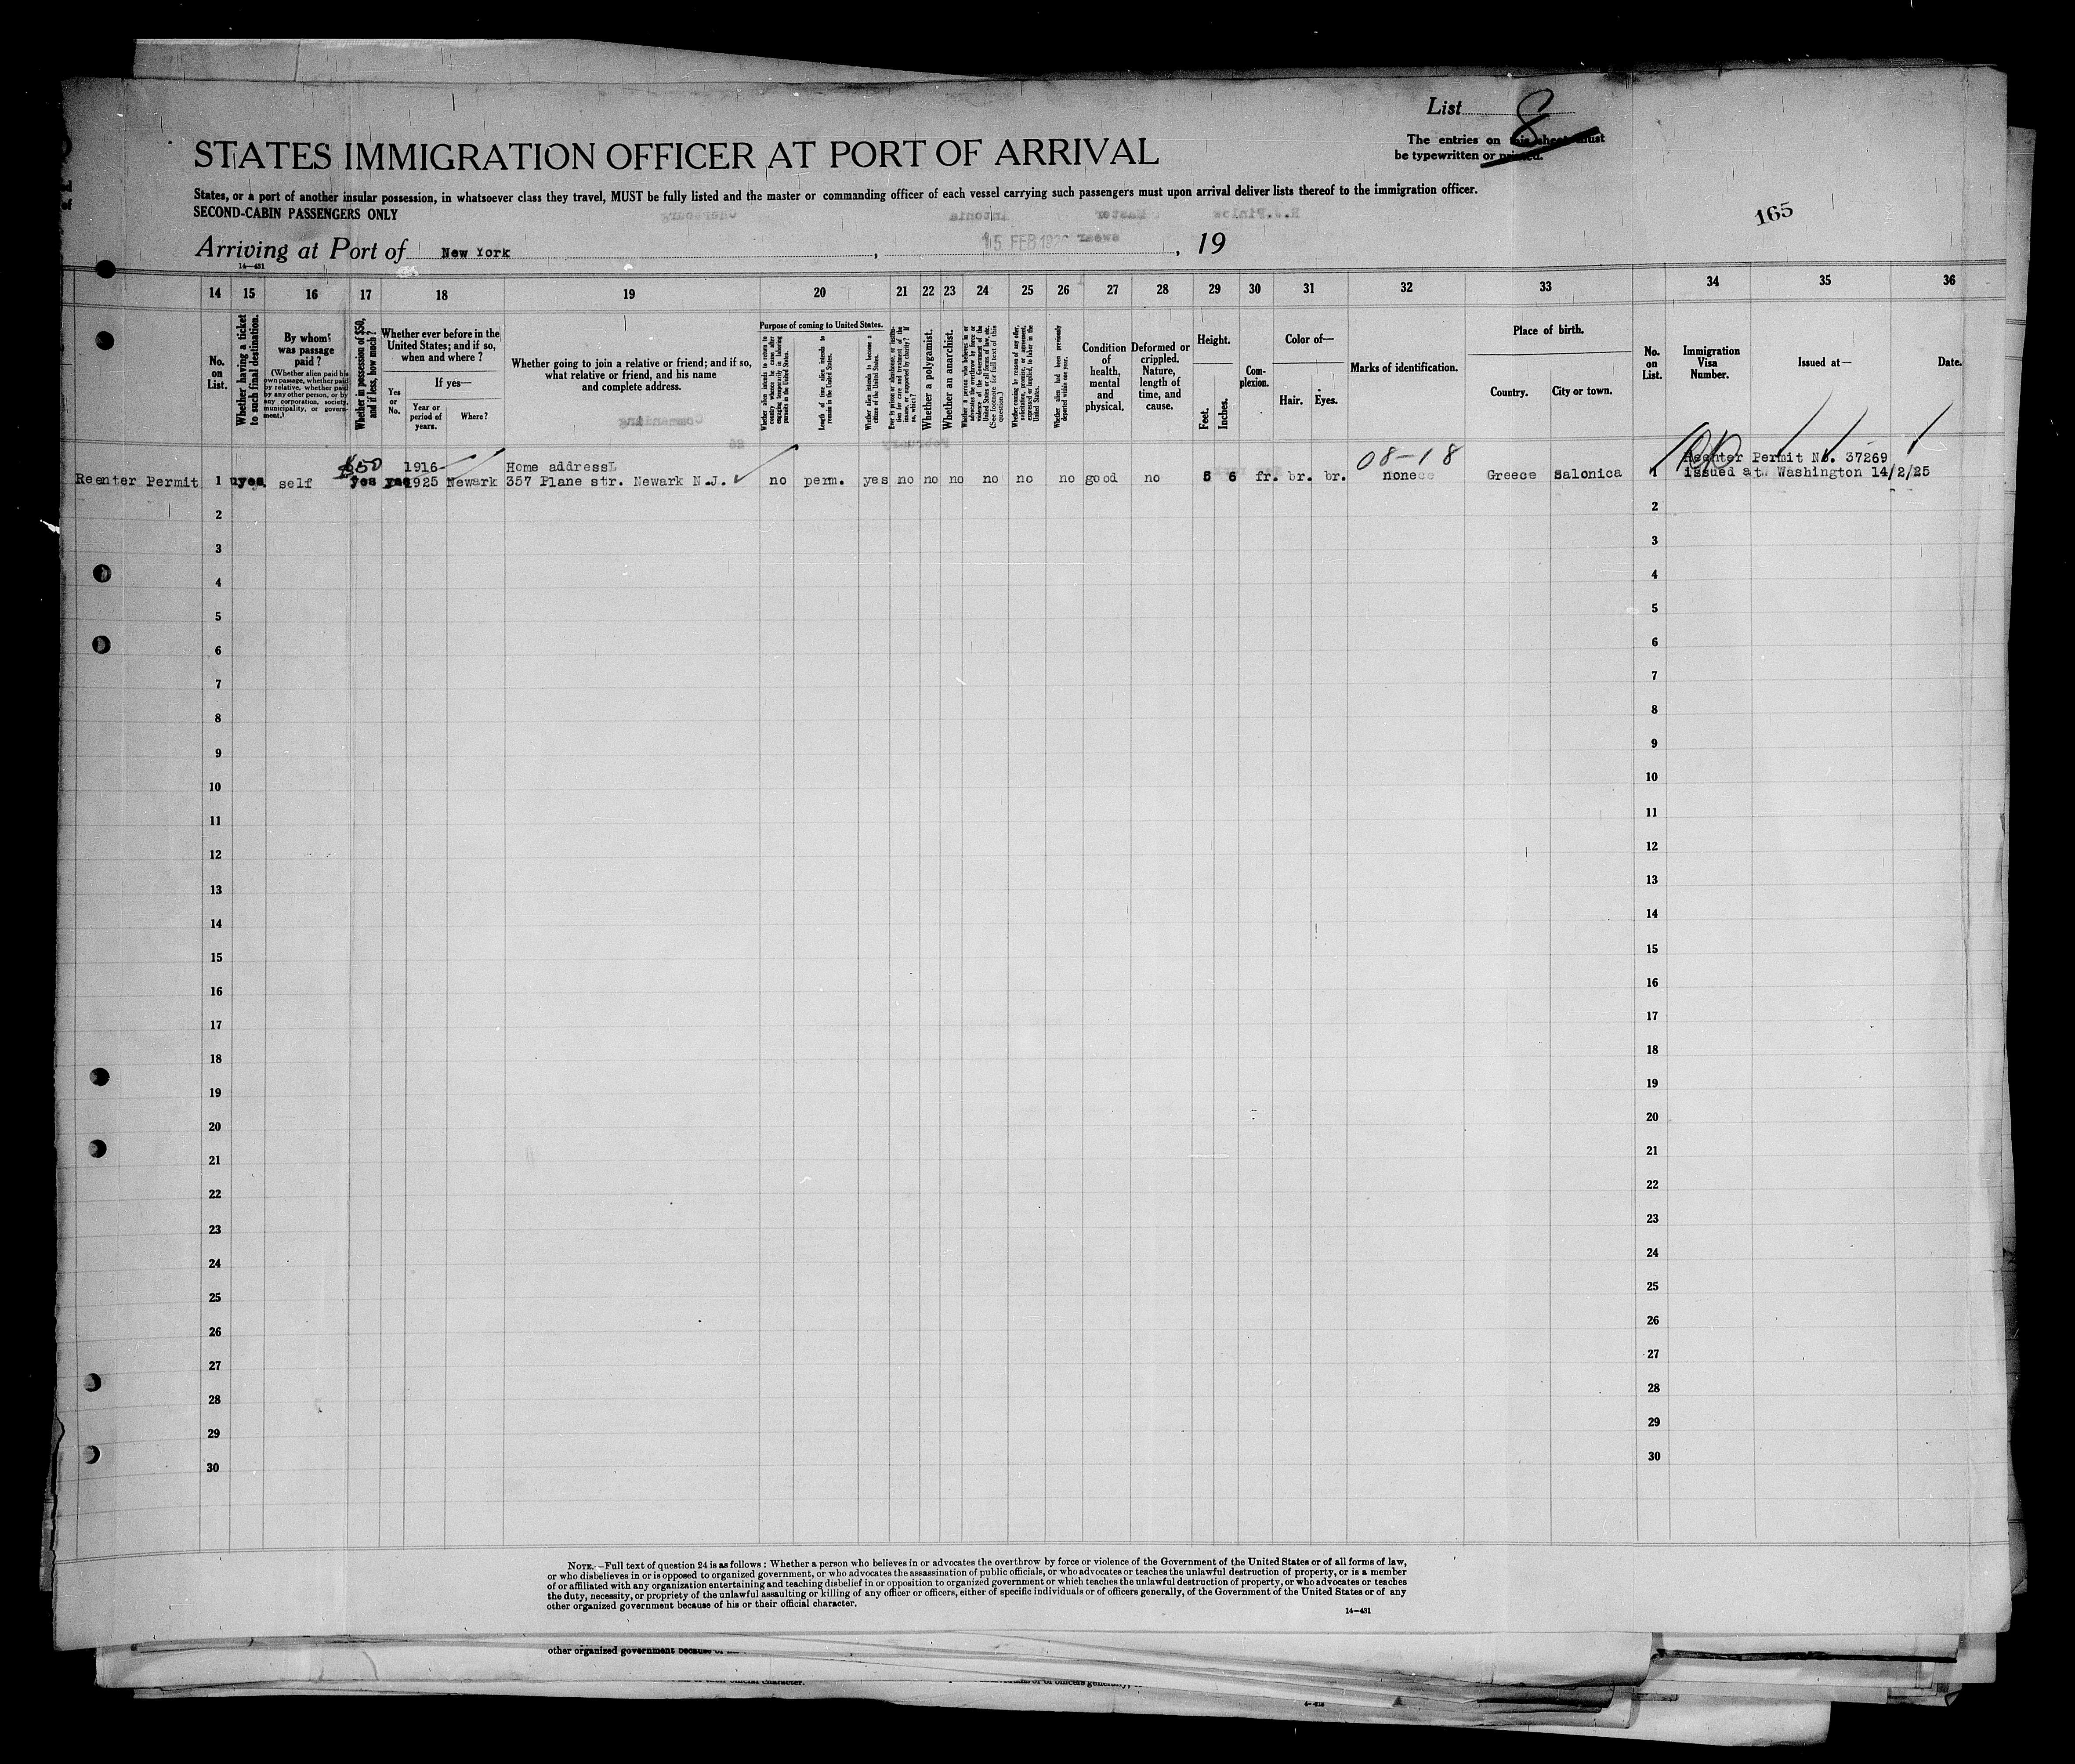 List 8
The entries on this sheet must
be typewritten or printed.
STATES IMMIGRATION OFFICER AT PORT OF ARRIVAL
States, or a port of another insular possession, in whatsoever class they travel, MUST be fully listed and the master or commanding officer of each vessel carrying such passengers must upon arrival deliver lists thereof to the immigration officer.
SECOND-CABIN PASSENGERS ONLY
165
Arriving at Port of New York, 15 FEB 192, 19
14—431
14 15 16 17 18 19 20 21 22 23 24 25 26 27 28 29 30 31 32 33 34 35 36
No. on List.
Whether having a ticket to such final destination.
By whom was passage paid?
(Whether alien paid his own passage, whether paid by relative, whether paid by any other person, or by any corporation, society, municipality, or government.)
Whether in possession of $50, and if less, how much?
Whether ever before in the United States; and if so, when and where?
Yes or No.
If yes—
Year or period of years.
Where?
Whether going to join a relative or friend; and if so, what relative or friend, and his name and complete address.
Purpose of coming to United States.
Whether alien intends to return to country whence he came after engaging temporarily in laboring pursuits in the United States.
Length of time alien intends to remain in the United States.
Whether alien intends to become a citizen of the United States.
Ever in prison or almshouse, or institution for care and treatment of the insane, or supported by charity? If so, which?
Whether a polygamist.
Whether an anarchist.
Whether a person who believes in or advocates the overthrow by force or violence of the Government of the United States or all forms of law, etc. (See footnote for full text of this question.)
Whether coming by reason of any offer, solicitation, promise, or agreement, expressed or implied, to labor in the United States.
Whether alien had been previously deported within one year.
Condition of health, mental and physical.
Deformed or crippled. Nature, length of time, and cause.
Height.
Feet. Inches.
Complexion.
Color of—
Hair. Eyes.
Marks of identification.
Place of birth.
Country. City or town.
No. on List.
Immigration Visa Number.
Issued at—
Date.
$50 1916 Home address 08-18 Reenter Permit No. 37269
Reenter Permit 1 yes self yes yes 1925 Newark 357 Plane str. Newark N.J. no perm. yes no no no no no no good no 5 6 fr. br. br. none Greece Salonica 1 issued at Washington 14/2/25
2 2
3 3
4 4
5 5
6 6
7 7
8 8
9 9
10 10
11 11
12 12
13 13
14 14
15 15
16 16
17 17
18 18
19 19
20 20
21 21
22 22
23 23
24 24
25 25
26 26
27 27
28 28
29 29
30 30
NOTE.—Full text of question 24 is as follows: Whether a person who believes in or advocates the overthrow by force or violence of the Government of the United States or of all forms of law,
or who disbelieves in or is opposed to organized government, or who advocates the assassination of public officials, or who advocates or teaches the unlawful destruction of property, or is a member
of or affiliated with any organization entertaining and teaching disbelief in or opposition to organized government or which teaches the unlawful destruction of property, or who advocates or teaches
the duty, necessity, or propriety of the unlawful assaulting or killing of any officer or officers, either of specific individuals or of officers generally, of the Government of the United States or of any
other organized government because of his or their official character.
14—431
other organized government because of